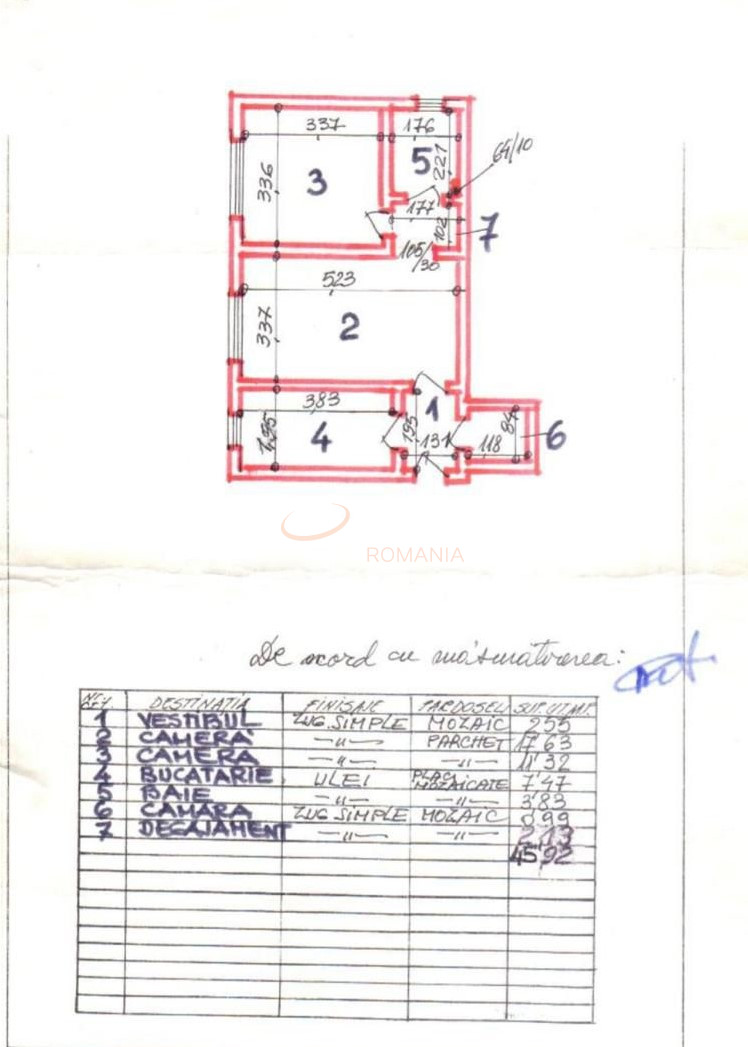 337
176
64/10
336
3
5
227
177
102
7
105/30
523
337
2
383
1
195
4
131
118
84
6
ROMANIA
De acord cu măsurătorea:
NR. CRT. DESTINATIA FINISAJE PARDOSELI SUP. UT. M.P.
1 VESTIBUL ZUG. SIMPLE MOZAIC 2,55
2 CAMERA —"— PARCHET 17,63
3 CAMERA —"— —"— 11,32
4 BUCATARIE ULEI PLACI MOZAICATE 7,47
5 BAIE —"— —"— 3,83
6 CAMARA ZUG SIMPLE MOZAIC 0,99
7 DEGAJAMENT —"— —"— 2,13
45,92